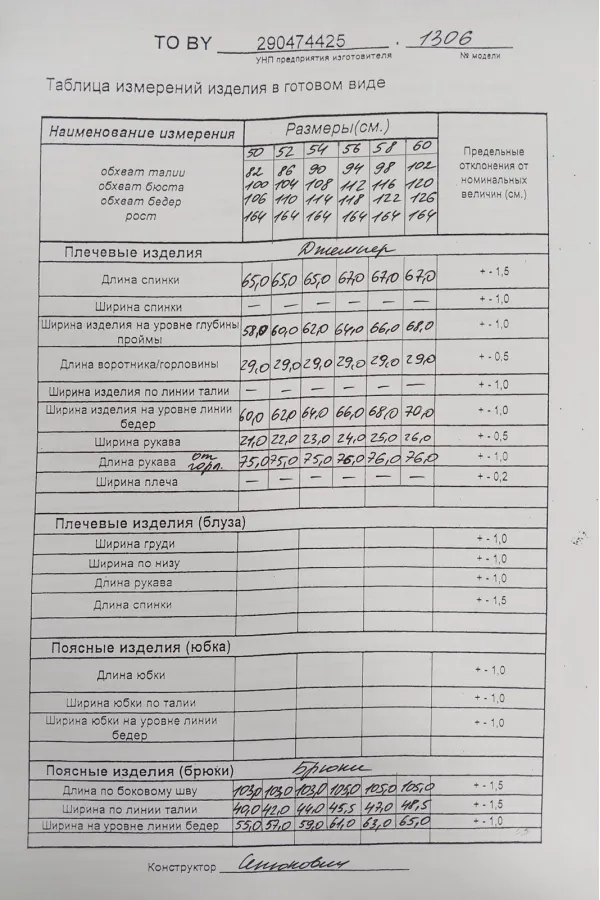 ТО BY 290474425 . 1306
УНП предприятия изготовителя № модели
Таблица измерений изделия в готовом виде
Наименование измерения Размеры(см.) Предельные отклонения от номинальных величин (см.)
50 52 54 56 58 60
обхват талии 82 86 90 94 98 102
обхват бюста 100 104 108 112 116 120
обхват бедер 106 110 114 118 122 126
рост 164 164 164 164 164 164
Плечевые изделия Джемпер
Длина спинки 65,0 65,0 65,0 67,0 67,0 67,0 + - 1,5
Ширина спинки — — — — — — + - 1,0
Ширина изделия на уровне глубины проймы 58,0 60,0 62,0 64,0 66,0 68,0 + - 1,0
Длина воротника/горловины 29,0 29,0 29,0 29,0 29,0 29,0 + - 0,5
Ширина изделия по линии талии — — — — — — + - 1,0
Ширина изделия на уровне линии бедер 60,0 62,0 64,0 66,0 68,0 70,0 + - 1,0
Ширина рукава 21,0 22,0 23,0 24,0 25,0 26,0 + - 0,5
Длина рукава от горл. 75,0 75,0 75,0 76,0 76,0 76,0 + - 1,0
Ширина плеча — — — — — — + - 0,2
Плечевые изделия (блуза)
Ширина груди + - 1,0
Ширина по низу + - 1,0
Длина рукава + - 1,0
Длина спинки + - 1,5
Поясные изделия (юбка)
Длина юбки + - 1,0
Ширина юбки по талии + - 1,0
Ширина юбки на уровне линии бедер + - 1,0
Поясные изделия (брюки) Брюки
Длина по боковому шву 103,0 103,0 103,0 103,0 105,0 105,0 + - 1,5
Ширина по линии талии 40,0 42,0 44,0 45,5 47,0 48,5 + - 1,5
Ширина на уровне линии бедер 55,0 57,0 59,0 61,0 63,0 65,0 + - 1,0
Конструктор